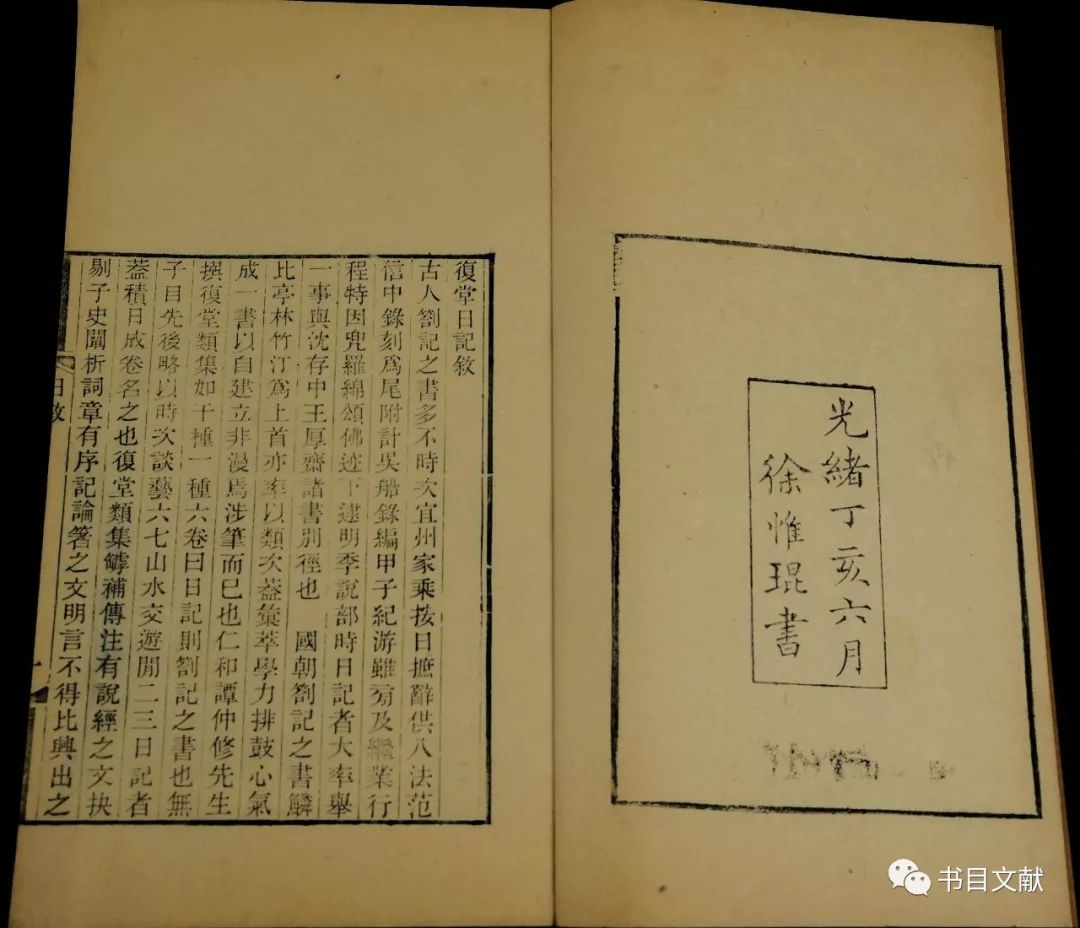 光緒丁亥六月
徐惟琨書
復堂日記敘
古人劄記之書多不時次宜州家乘按日摭辭供八法范
信中錄刻為尾附計吳船錄編甲子紀游雖㫄及繼業行
程特因兜羅綿頌佛迹下逮明季說部時日記者大率舉
一事與沈存中王厚齋諸書別徑也 國朝劄記之書鱗
比亭林竹汀為上首亦率以類次葢彙萃學力排鼓心氣
成一書以自建立非漫焉涉筆而巳也仁和譚仲修先生
撰復堂類集如干種一種六卷曰日記則劄記之書也無
子目先後略以時次談藝六七山水交遊閒二三日記者
葢積日成卷名之也復堂類集罅補傳注有說經之文抉
剔子史闡析詞章有序記論箸之文明言不得比興出之
日敘
一
书目文献